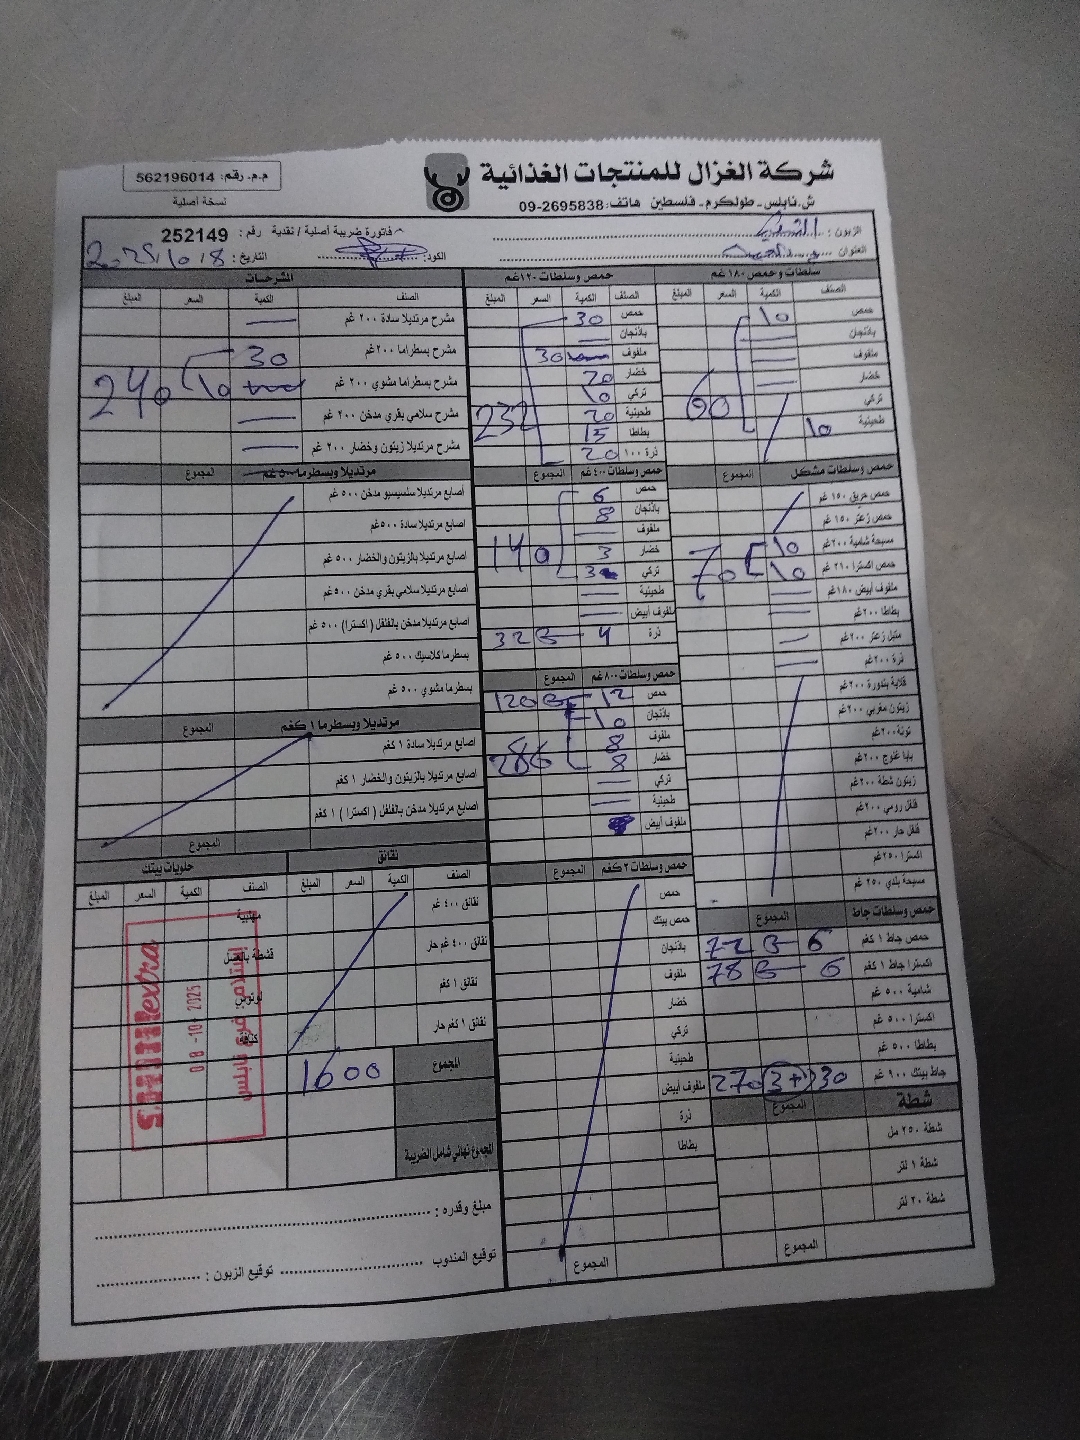 م.م. رقم: 562196014
شركة الغزال للمنتجات الغذائية
نسخة أصلية
ش. نابلس - طولكرم - فلسطين هاتف: 2695838-09
فاتورة ضريبة أصلية / نقدية رقم: 252149
الزبون:
العنوان
التاريخ: 2025/10/8
الكود:
سلطات وحمص ١٨٠ غم
الصنف الكمية السعر المبلغ
حمص 10
باذنجان
ملفوف
خضار
تركي
طحينية 10
60
حمص وسلطات مشكل المجموع
حمص حريق ١٥٠ غم
حمص زعتر ١٥٠ غم
مسبحة شامية ٢٠٠ غم 10
حمص اكسترا ٢١٠ غم 10
70
ملفوف أبيض ١٨٠ غم
بطاطا ٢٠٠ غم
متبل زعتر ٢٠٠ غم
ذرة ٢٠٠ غم
قلاية بندورة ٢٠٠ غم
زيتون مغربي ٢٠٠ غم
تونة ٢٠٠ غم
بابا غنوج ٢٠٠ غم
زيتون شطة ٢٠٠ غم
فلفل رومي ٢٠٠ غم
فلفل حار ٢٠٠ غم
اكسترا ٢٥٠ غم
مسبحة بلدي ٢٥٠ غم
حمص وسلطات جاط المجموع
حمص جاط ١ كغم 6 72
اكسترا جاط ١ كغم 6 78
شامية ٥٠٠ غم
اكسترا ٥٠٠ غم
بطاطا ٥٠٠ غم
جاط بيتك ٩٠٠ غم 30 3+ 270
شطة المجموع
شطة ٢٥٠ مل
شطة ١ لتر
شطة ٢٠ لتر
المجموع
حمص وسلطات ١٢٠ غم
الصنف الكمية السعر المبلغ
حمص 30
باذنجان
ملفوف 30
خضار 20
تركي 10
طحينية 20
بطاطا 15
ذرة ١٠٠ 20
232
حمص وسلطات ٤٠٠ غم المجموع
حمص 6
باذنجان 8
ملفوف
خضار 3
تركي 3
140
طحينية
ملفوف أبيض
ذرة 4 32
حمص وسلطات ٨٠٠ غم المجموع
حمص 12 120
باذنجان 10
ملفوف 8
خضار 8
286
تركي
طحينية
ملفوف أبيض
حمص وسلطات ٢ كغم المجموع
حمص
حمص بيتك
باذنجان
ملفوف
خضار
تركي
طحينية
ملفوف أبيض
ذرة
بطاطا
المجموع
المشرحات
الصنف الكمية السعر المبلغ
مشرح مرتديلا سادة ٢٠٠ غم
مشرح بسطراما ٢٠٠ غم 30
مشرح بسطراما مشوي ٢٠٠ غم 10 240
مشرح سلامي بقري مدخن ٢٠٠ غم
مشرح مرتديلا زيتون وخضار ٢٠٠ غم
مرتديلا وبسطرما ٥٠٠ غم المجموع
اصابع مرتديلا سلسيسيو مدخن ٥٠٠ غم
اصابع مرتديلا سادة ٥٠٠ غم
اصابع مرتديلا بالزيتون والخضار ٥٠٠ غم
اصابع مرتديلا سلامي بقري مدخن ٥٠٠ غم
اصابع مرتديلا مدخن بالفلفل ( اكسترا ) ٥٠٠ غم
بسطرما كلاسيك ٥٠٠ غم
بسطرما مشوي ٥٠٠ غم
مرتديلا وبسطرما ١ كغم المجموع
اصابع مرتديلا سادة ١ كغم
اصابع مرتديلا بالزيتون والخضار ١ كغم
اصابع مرتديلا مدخن بالفلفل ( اكسترا ) ١ كغم
المجموع
نقانق
الصنف الكمية السعر المبلغ
نقانق ٤٠٠ غم
نقانق ٤٠٠ غم حار
نقانق ١ كغم
نقانق ١ كغم حار
حلويات بيتك
الصنف الكمية السعر المبلغ
مهلبية
قشطة بالعسل
لوتوس
كنافة
extra
08-10-2025
إستلام: فرع نابلس
المجموع 1600
المجموع نهائي شامل الضريبة
مبلغ وقدره :
توقيع المندوب
توقيع الزبون :